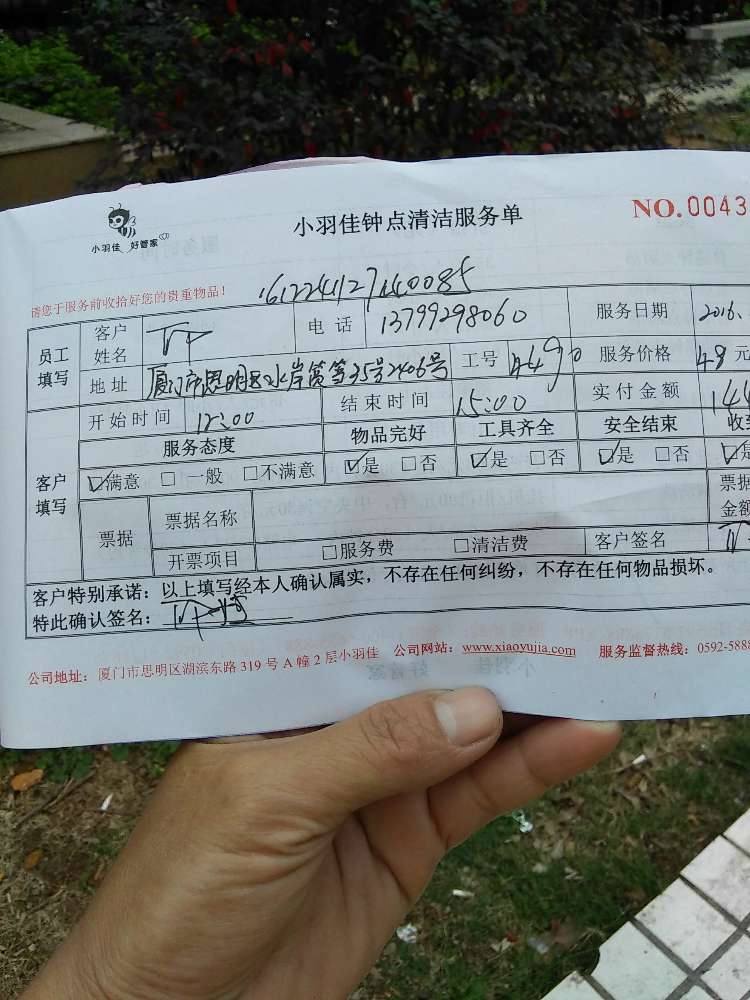 小羽佳 好管家
小羽佳钟点清洁服务单
NO.0043
请您于服务前收拾好您的贵重物品！
161224112740085
员工填写 客户姓名 电话 13799298060 服务日期 2016.
地址 厦门市思明区水岸筼筜35号2406号 工号 服务价格 48元
客户填写 开始时间 12:00 结束时间 15:00 实付金额 144
服务态度 物品完好 工具齐全 安全结束 收
☑满意 □一般 □不满意 ☑是 □否 ☑是 □否 ☑是 □否 ☑是
票据 票据名称 票据金额
开票项目 □服务费 □清洁费 客户签名
客户特别承诺：以上填写经本人确认属实，不存在任何纠纷，不存在任何物品损坏。
特此确认签名：
公司地址：厦门市思明区湖滨东路 319 号 A 幢 2 层小羽佳 公司网站：www.xiaoyujia.com 服务监督热线：0592-5888